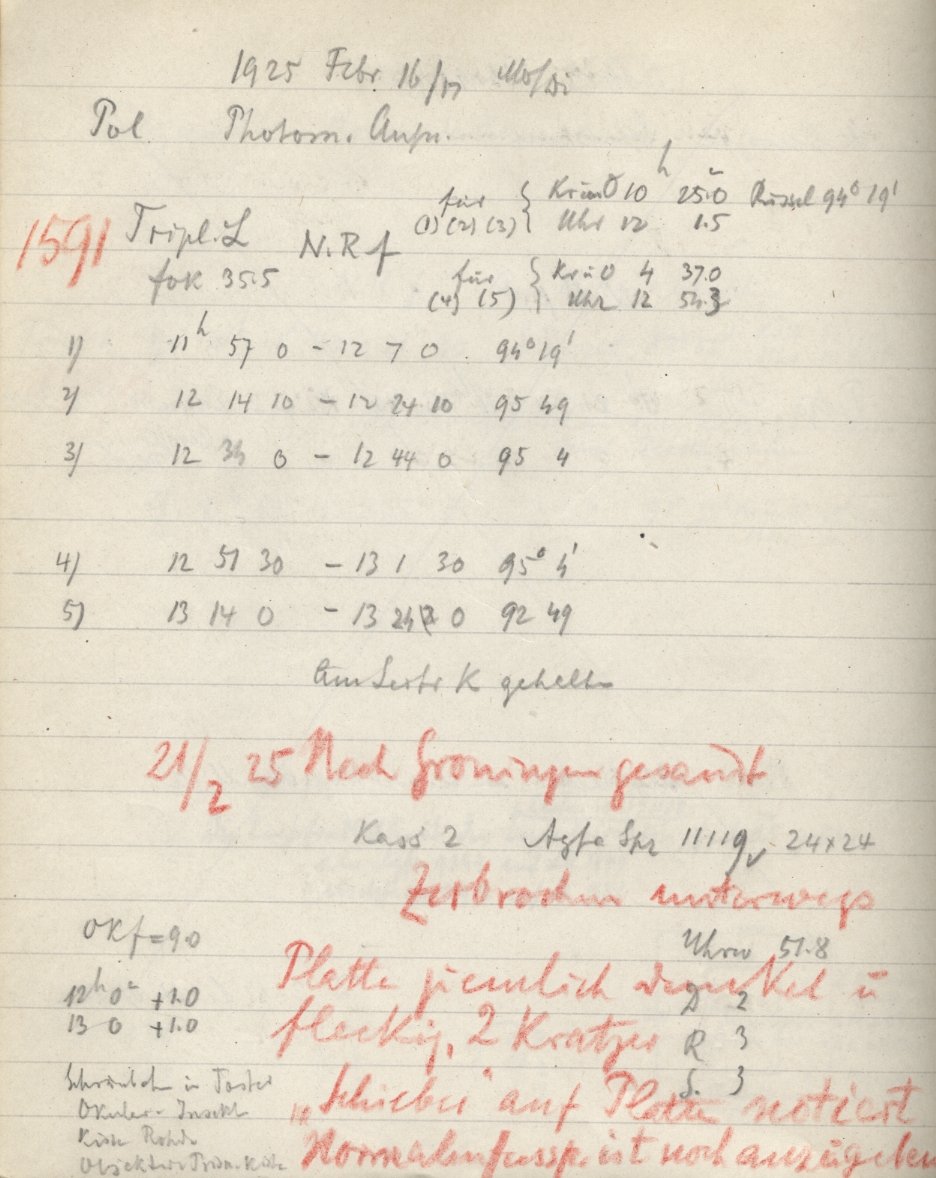 1925 Febr 16/17 Mo/Di
Pol. Photom. Aufn.
für { KrünO 10h 25.0 Rüssel 94° 19'
1591 Tripl. L N. R f (1) (2) (3) { Uhr 12 1.5
fok 35.5 für { KrüO 4 37.0
(4) (5) } Uhr 12 54.3
1) 11h 57 0 - 12 7 0 94° 19'
2) 12 14 10 - 12 24 10 95 49
3) 12 34 0 - 12 44 0 95 4
4) 12 51 30 - 13 1 30 95° 4'
5) 13 14 0 - 13 24 0 92 49
K gehalten
21/2 25 Nach Groningen gesandt
Kass 2 Agfa Spz 11119 24x24
Zerbrochen unterwegs
Okf = 9.0 Uhrw 51.8
Platte ziemlich dunkel u
12h 0m +1.0 D 2
13 0 +1.0 fleckig, 2 Kratzer R 3
S. 3
in
„Schieber" auf Platte notiert
Okular-
Kiste
Normal ist noch anzugeben
Objektiv